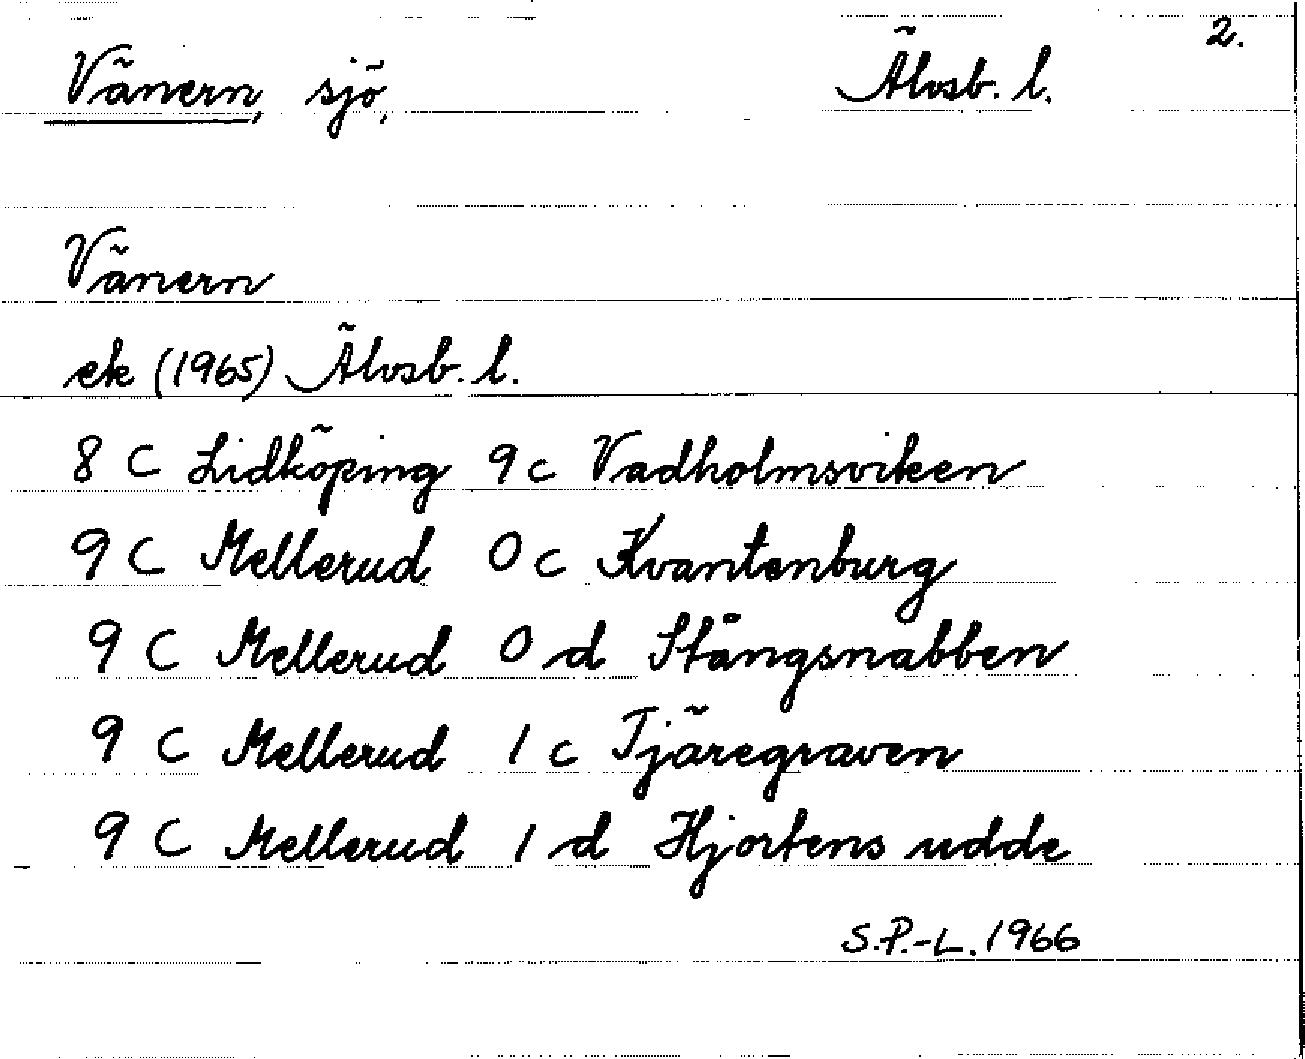 2.
Vänern, sjö, Älvsb. l.
Vänern
ek (1965) Älvsb. l.
8 C Lidköping 9 c Vadholmsviken
9 C Mellerud 0 c Kvantenburg
9 C Mellerud 0 d Stångsnabben
9 C Mellerud 1 c Tjäregraven
9 C Mellerud 1 d Hjortens udde
S.P.-L. 1966